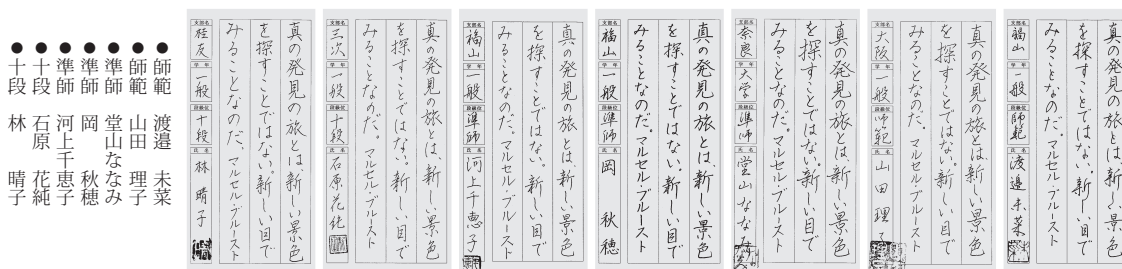 真の発見の旅とは、新しい景色
を探すことではない。新しい目で
みることなのだ。マルセル・プルースト
支部名 福山 学年 一般 段級位 師範 氏名 渡邉未菜
真の発見の旅とは、新しい景色
を探すことではない。新しい目で
みることなのだ。マルセル・プルースト
支部名 大阪 学年 一般 段級位 師範 氏名 山田理子
真の発見の旅とは、新しい景色
を探すことではない。新しい目で
みることなのだ。マルセル・プルースト
支部名 奈良 学年 大学 段級位 準師 氏名 堂山ななみ
真の発見の旅とは、新しい景色
を探すことではない。新しい目で
みることなのだ。マルセル・プルースト
支部名 福山 学年 一般 段級位 準師 氏名 岡 秋穂
真の発見の旅とは、新しい景色
を探すことではない。新しい目で
みることなのだ。マルセル・プルースト
支部名 福山 学年 一般 段級位 準師 氏名 河上千恵子
真の発見の旅とは、新しい景色
を探すことではない。新しい目で
みることなのだ。マルセル・プルースト
支部名 三次 学年 一般 段級位 十段 氏名 石原花純
真の発見の旅とは、新しい景色
を探すことではない。新しい目で
みることなのだ。マルセル・プルースト
支部名 桂友 学年 一般 段級位 十段 氏名 林 晴子
●師範 渡邉 未菜
●師範 山田 理子
●準師 堂山ななみ
●準師 岡 秋穂
●準師 河上千恵子
●十段 石原 花純
●十段 林 晴子